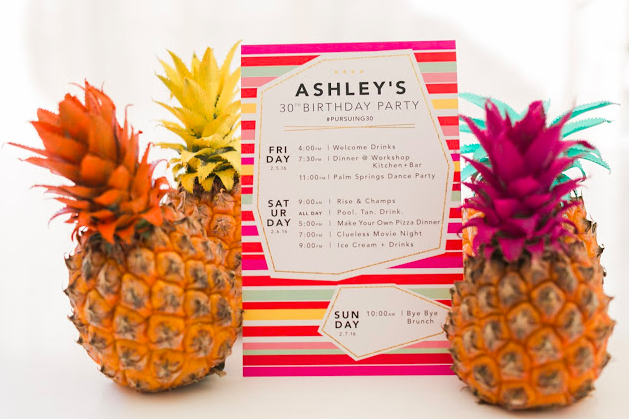 ASHLEY'S
30TH BIRTHDAY PARTY
#PURSUING30
FRI
DAY
2.5.16
4:00PM | Welcome Drinks
7:30PM | Dinner @ Workshop
Kitchen+Bar
11:00PM | Palm Springs Dance Party
SAT
UR
DAY
2.6.16
9:00AM | Rise & Champs
ALL DAY | Pool. Tan. Drink.
5:00PM | Make Your Own Pizza Dinner
7:00PM | Clueless Movie Night
9:00PM | Ice Cream + Drinks
SUN
DAY
2.7.16
10:00AM | Bye Bye
Brunch